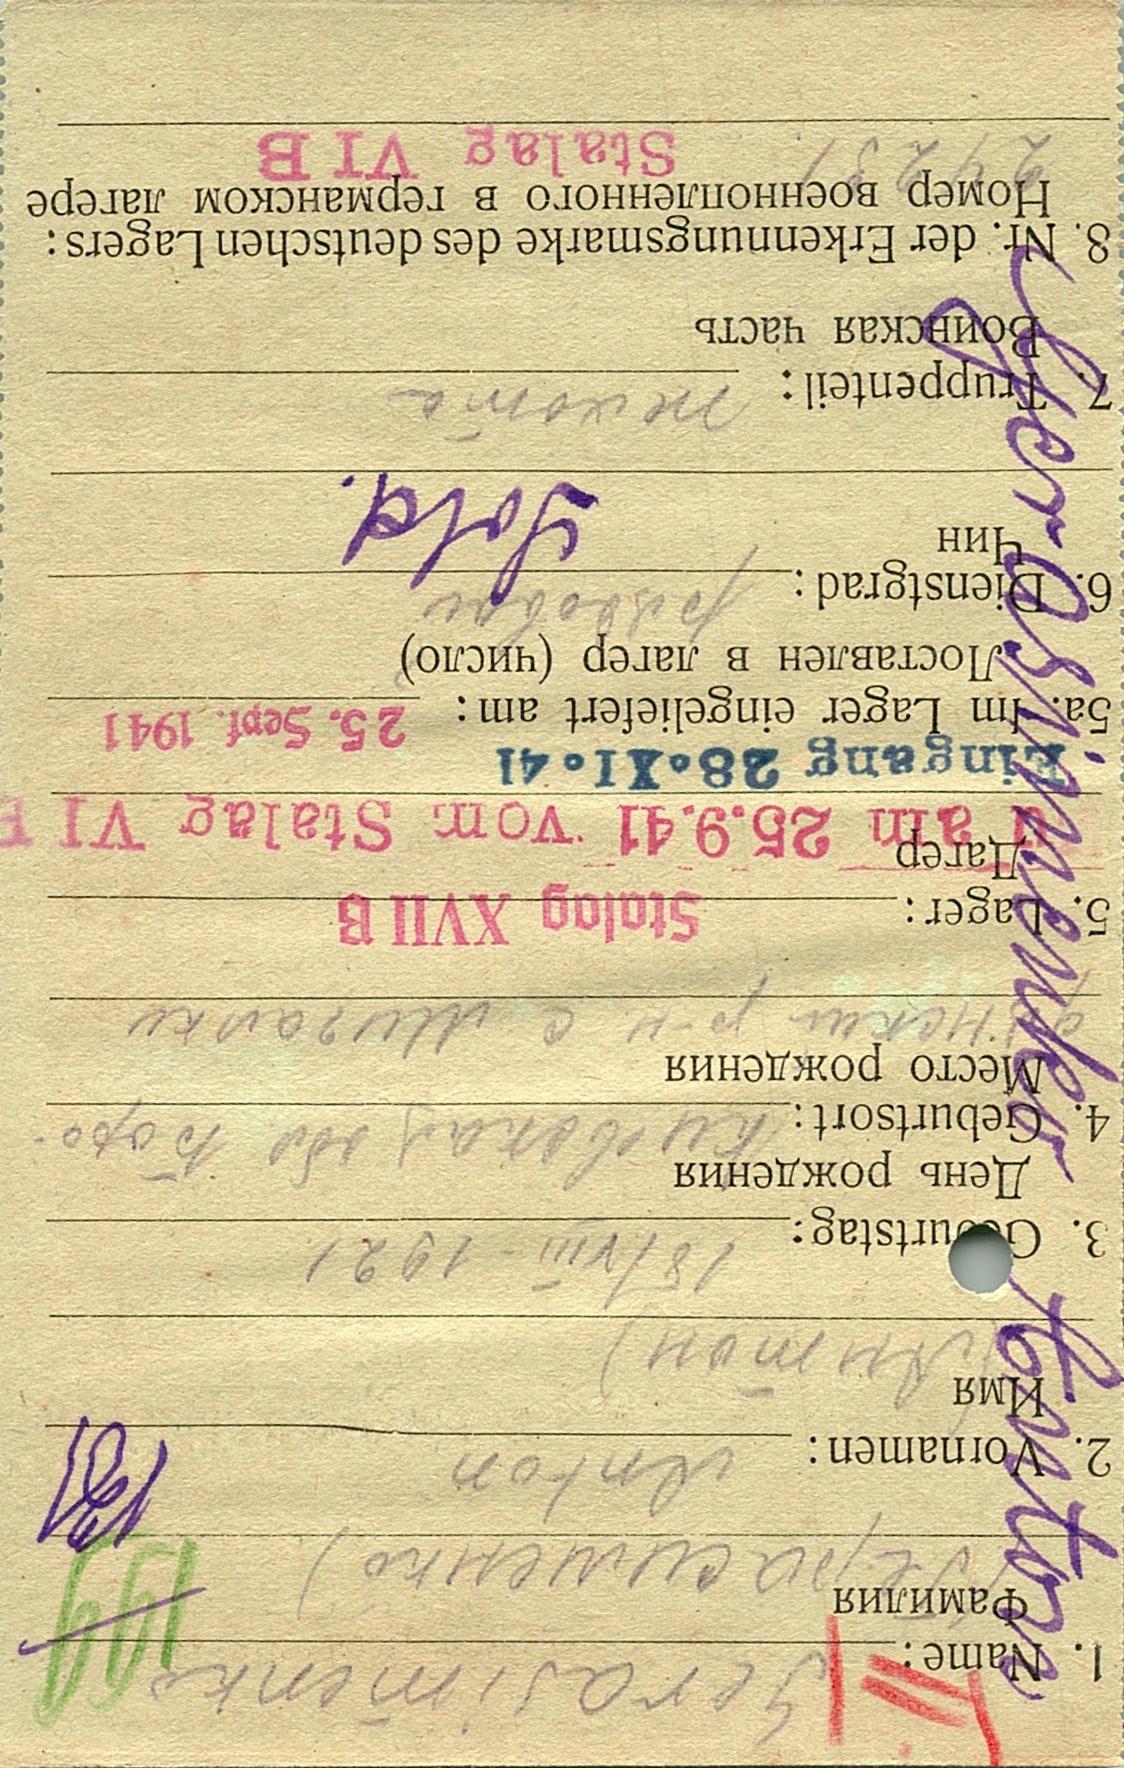 1. Name: Gerasimenko
Фамилия (Герасименко)
199
181
2. Vornamen: Anton
Имя (Антон)
3. Geburtstag: 18/VIII - 1921
День рождения
4. Geburtsort:
Место рождения
р-н с
5. Lager: Stalag XVII B
Лагер
am 25.9.41 vom Stalag VI
Eingang 28.XI.41
5a. Im Lager eingeliefert am: 25. Sept. 1941
Доставлен в лагер (число)
6. Dienstgrad: рядовой
Чин Sold.
7. Truppenteil: пехота
Воинская часть
8. Nr. der Erkennungsmarke des deutschen Lagers:
Номер военнопленного в германском лагере
Stalag VI B
Anton Gerasimenko